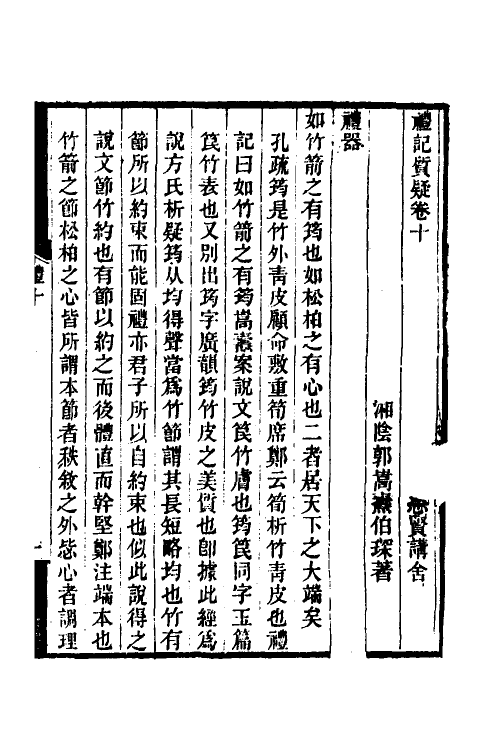 禮記質疑卷十
思賢講舍
湘陰郭嵩燾伯琛著
禮器
如竹箭之有筠也如松柏之有心也二者居天下之大端矣
孔疏筠是竹外青皮顧命敷重筍席鄭云筍析竹青皮也禮
記曰如竹箭之有筠嵩燾案說文笢竹膚也筠笢同字玉篇
笢竹表也又別出筠字廣韻筠竹皮之美質也卽據此經為
說方氏析疑筠从均得聲當爲竹節謂其長短略均也竹有
節所以約束而能固禮亦君子所以自約束也似此說得之
說文節竹約也有節以約之而後體直而幹堅鄭注端本也
竹箭之節松柏之心皆所謂本節者秩敘之外㤠心者調理
禮十
一